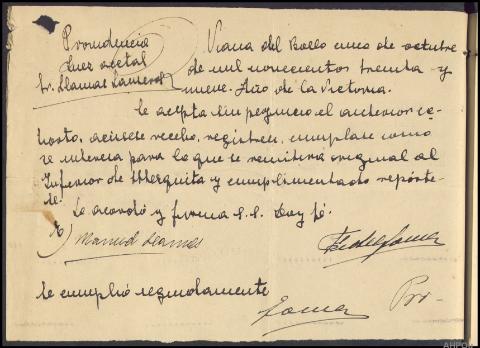 Providencia
Juez actal
Sr. Llamas
Viana del Bollo cinco de octubre
de mil novecientos treinta y
nueve. Año de la Victoria.
Se acepta sin perjuicio el anterior ex-
horto, acúsese recibo, regístrese, cumplase como
se interesa para lo que se remitira original al
Inferior de Mezquita y cumplimentado repórte-
se.
Lo acordó y firma S.S. Doy fé.
E/ Manuel Llamas
Se cumplió seguidamente